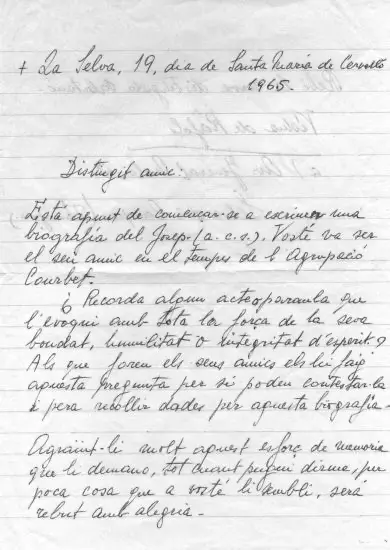 + La Selva, 19, dia de Santa Maria de Cervelló
1965.
Distingit amic:
Està apunt de començar-se a escriurer una
biografia del Josep (a.c.s.). Vosté va ser
el seu amic en el temps de l'Agrupació
Courbet.
¿ Recorda algun acte o paraula que
l'evoqui amb tota la força de la seva
bondat, humilitat o integritat d'esperit?
Als que foren els seus amics els hi faig
aquesta pregunta per si poden contestar-la
i pera recollir dades per aquesta biografia.
Agraint-li molt aquest esforç de memoria
que li demano, tot quant pugui dirme, per
poca cosa que a vosté li sembli, serà
rebut amb alegria.-